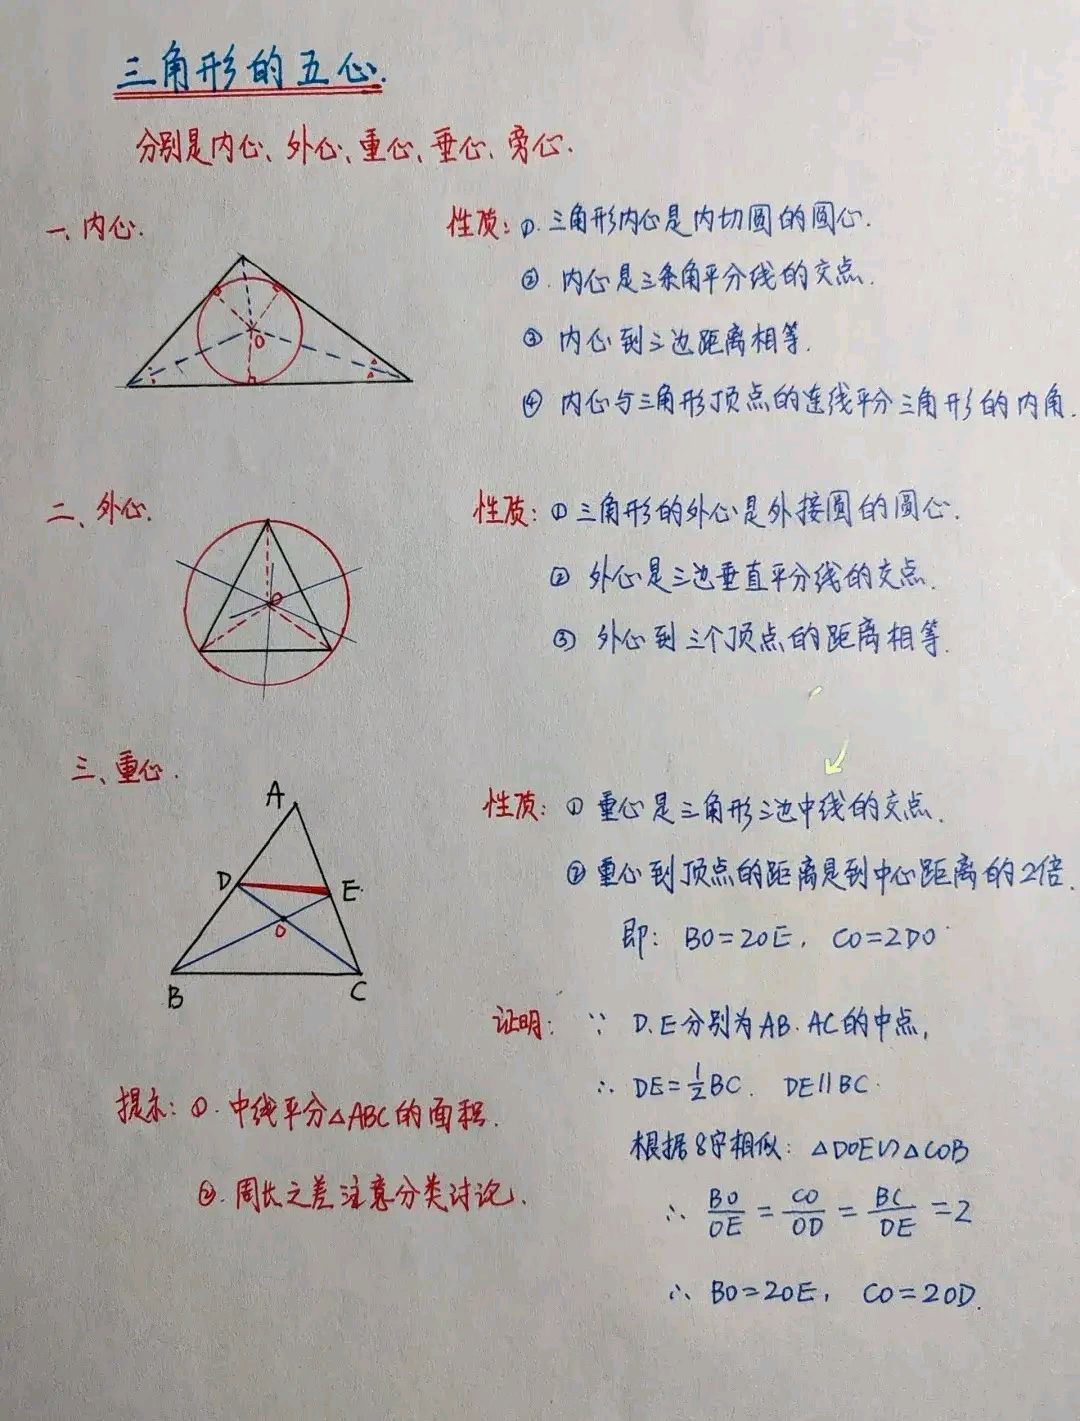 三角形的五心.
分别是内心、外心、重心、垂心、旁心.
一、内心.
O
性质: ①. 三角形内心是内切圆的圆心.
②. 内心是三条角平分线的交点.
③ 内心到三边距离相等.
④ 内心与三角形顶点的连线平分三角形的内角.
二、外心.
O
性质: ① 三角形的外心是外接圆的圆心.
② 外心是三边垂直平分线的交点.
③ 外心到三个顶点的距离相等.
三、重心.
A
D
E
O
B
C
性质: ① 重心是三角形三边中线的交点.
② 重心到顶点的距离是到中心距离的2倍.
即: BO=2OE, CO=2DO
证明: ∵ D.E分别为AB.AC的中点,
∴ DE=1/2BC. DE∥BC.
根据8字相似: △DOE∽△COB
∴ BO/OE = CO/OD = BC/DE =2
∴ BO=2OE, CO=2OD.
提示: ①. 中线平分△ABC的面积.
②. 周长之差注意分类讨论.